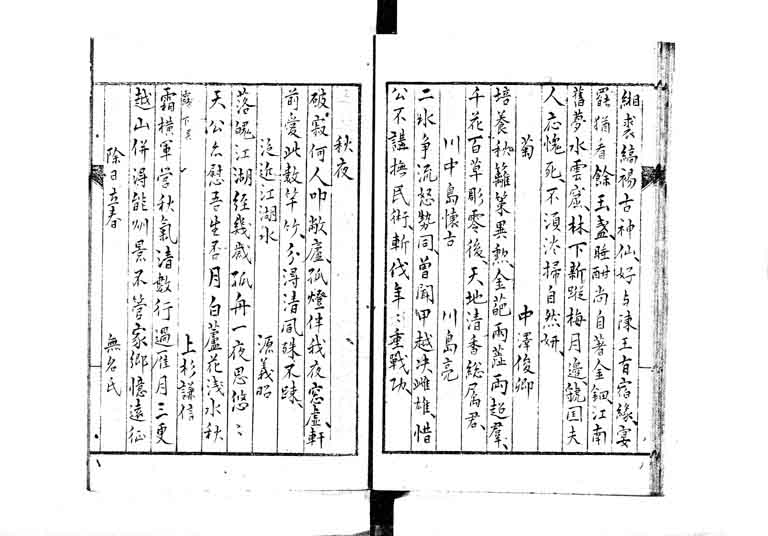 緗裘縞裼古神仙、好与陳王有宿緣、宴
罷猶看餘玉盞、睡酣尚自著金鈿、江南
舊夢水雲窟、林下新蹤梅月邊、虢国夫
人応愧死、不須淡掃自然妍、
菊 中澤俊卿
培養秋籬策異勲、金葩雨蕋両超羣、
千花百草彫零後、天地清香総属君、
川中島懐古 川島亮
二水争流怒勢同、曽聞甲越决雌雄、惜
公不講撫民術、斬伐年〻重戰功、
秋夜
破寂何人叩敝廬、孤燈伴我夜窓虚、軒
前愛此数竿竹、分得清風殊不踈、
泛近江湖水 源義昭
落魄江湖經幾歳孤舟一夜思悠〻
天公亦慰吾生否月白蘆花浅水秋
上杉謙信
霜横軍営秋氣清数行過雁月三更
越山併得能州景不管家郷憶遠征
除日立春 無名氏